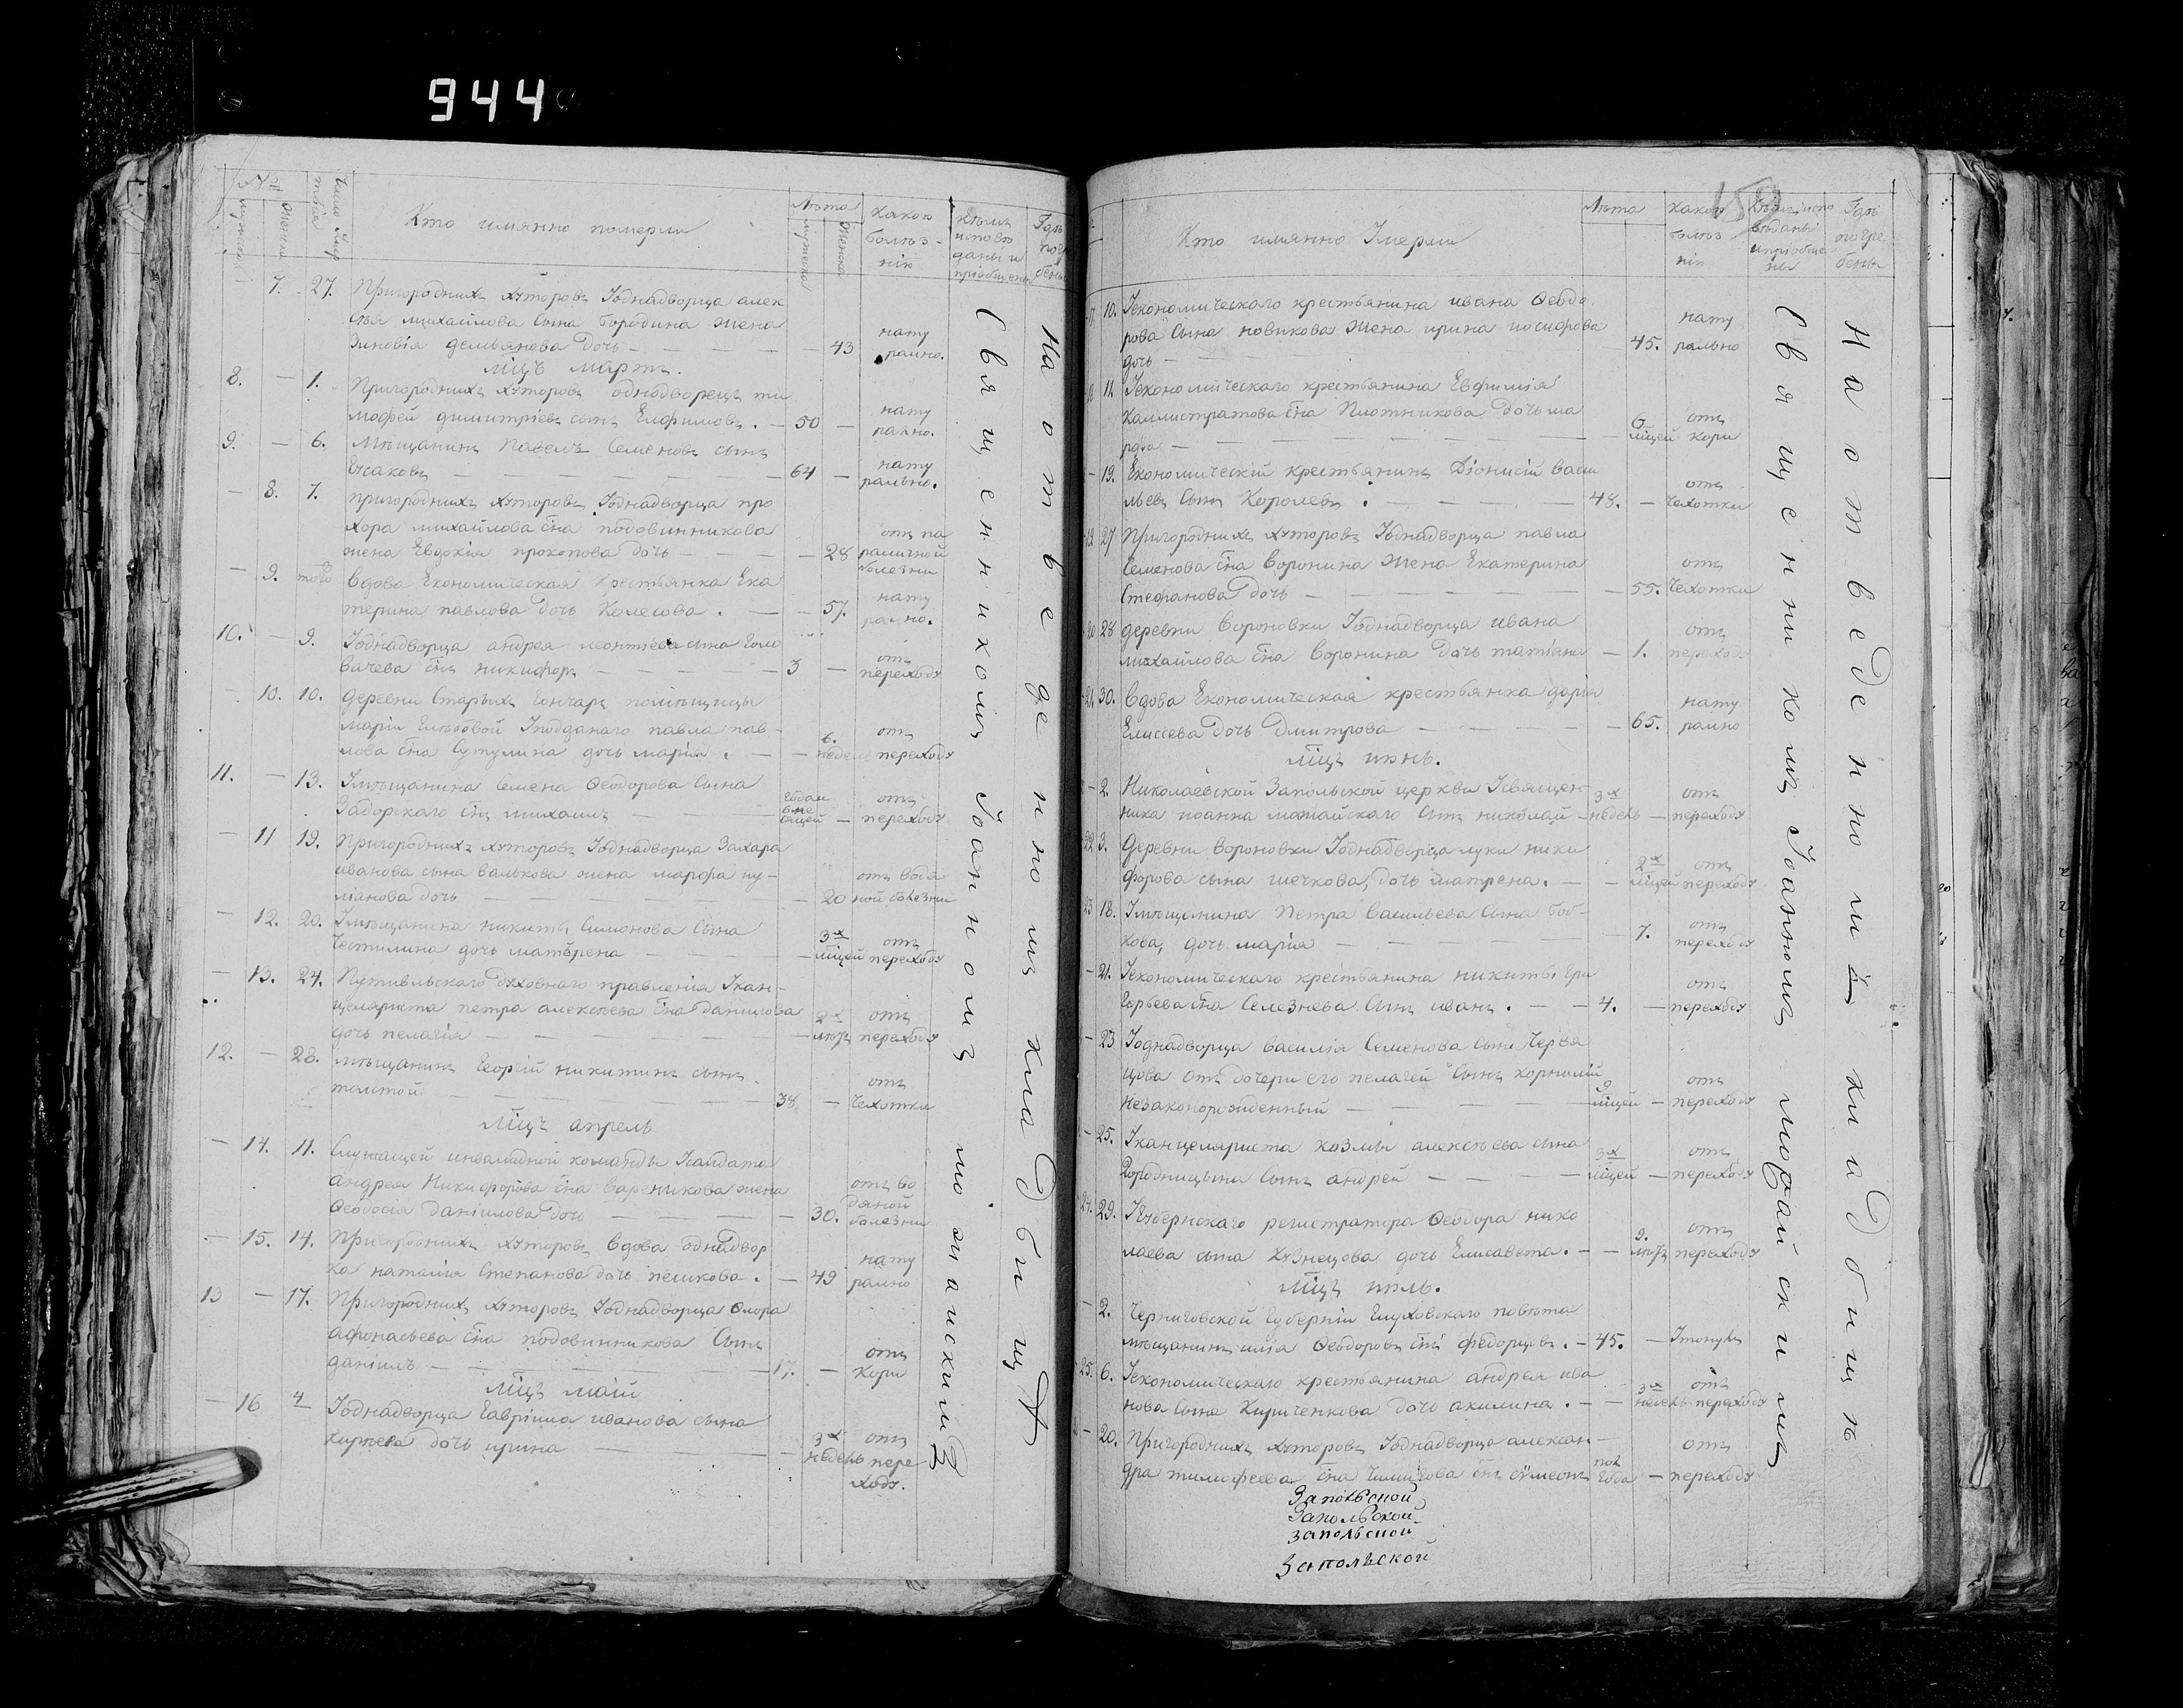 944
№
мужеска
женска
Число мир
Кто имянно померли
Лѣта
мужеска
женска
какою
болѣз-
нію
кѣмъ
исповѣ
даны и
пріобщены
Гдѣ
погре
бены
7. 27. Пригороднихъ хуторовъ Уоднадворца алек
сѣя михайлова сына бородина жена
зиновія демьянова дочь — 43 нату
рално.
мцъ мартъ.
8. — 1. Пригороднихъ хуторовъ однадворецъ ти
мофей димитріевъ сынъ Елфимовъ. — 50 — нату
рално.
9. — 6. Мѣщанинъ Павелъ Семеновъ сынъ
— 64 — нату
рально.
— 8. 7. пригороднихъ хуторовъ Уоднадворца про
хора михайлова сна подовинникова
жена Евдокія прокопова дочь — — 28 отъ па
раличной
болезни
— 9. того вдова Економическая крестьянка Ека
терина павлова дочь Колесова. — 57. нату
рално.
10. — 9. Уоднадворца андрея леонтіева сына голо
вачева снъ никифоръ — 3 — отъ
переходу
— 10. 10. деревни Старыхъ Гончаръ помѣщицы
маріи Глѣбовой Уподданаго павла пав-
лова сна Сутулина дочь марія. — 6.
недель
отъ
переходу
11. — 13. Умѣщанина Семена Ѳеодорова Сына
Задорскаго снъ михаилъ — отъ
переходу
— 11 19. Пригороднихъ хуторовъ Уоднадворца Захара
иванова сына валькова жена марфа
дочь — 20 отъ водя
ной болезни
— 12. 20. Умѣщанина никиты Симонова Сына
Честилина дочь матѣрена — 3х
мцей
отъ
переходу
— 13. 24. Путивльскаго духовнаго правленія Укан-
целяриста петра алексѣева сна данилова
дочь пелагія — 2х
отъ
переходу
12. — 28. мѣщанинъ Георгій никитинъ сынъ
толстой — 38 — отъ
Чехотки
Мцъ апрель
— 14. 11. Служащей инвалидной команды Усалдата
андрея Никифорова сна вареникова жена
Ѳеодосія данилова дочь — 30. отъ во
дяной
болезни
— 15. 14. Пригороднихъ хуторовъ вдова однадвор
ка наталія Степанова дочь пешкова. — 49 нату
рално
13 — 17. Пригороднихъ хуторовъ Уоднадворца Флора
афонасьева сна подовинникова Сынъ
даніилъ — 17. — отъ
Кори
Мцъ маій
— 16 4 Уоднадворца Гавріила иванова сына
дочь ирина — 3х
недель
отъ
пере
ходу.
Священникомъ Йоанномъ можайскимъ
На отведенномъ кладбищѣ
150
Кто имянно Умерли
Лѣта
какою
болѣз
нію
вѣданы
ипріобще
ны
Гдѣ
погре
бены
17. 10. Уекономическаго крестьянина ивана Ѳеодо
рова Сына новикова жена ирина иосифова
дочь — 45. нату
рально
18 11. Уекономическаго крестьянина Евфимія
Каллистратова сна Плотникова дочь ма
рфа — 6
мцей
отъ
кори
— 19. Економическій крестьянинъ Діонисій васи
льевъ Сынъ Королевъ. — 48. — отъ
Чехотки
19 27 Пригороднихъ хуторовъ Уоднадворца павла
Семенова сна воронина жена Екатерина
Стефанова дочь — 55. отъ
Чехотки
20 28 деревни вороновки Уоднадворца ивана
михайлова сна воронина дочь татіяна — 1. отъ
переходу
21. 30. вдова Економическая крестьянка дарія
Елисеева дочь Дмитрова — 65. нату
рално
мцъ июнь.
— 2. Николаевской Запольской церкви Усвящен-
ника иоанна можайскаго Сынъ николай — 3х
недель — отъ
переходу
22. 3. деревни вороновки Уоднадворца луки ники
форова сына шечкова, дочь матрена. — 2х
мцей
отъ
переходу
23 18. Умѣщанина Петра васильева Сына боб-
кова, дочь марія — 7. отъ
переходу
— 21. Уекономическаго крестьянина никиты Гри
горьева сна Селезнева Сынъ иванъ. — 4. — отъ
переходу
— 23 Уоднадворца василія Семенова сына Черва
цова отъ дочери его пелагеи Сынъ корнилій
незаконорожденный — 9
мцей — отъ
переходу
— 25. Уканцеляриста козмы алексѣева сына
Городницына Сынъ андрей — 3х
мцей — отъ
переходу
24. 29. Угубернскаго регистратора Ѳеодора нико
лаева сына Кузнецова дочь Елисавета. — 9.
отъ
переходу
мцъ июль.
— 2. Черниговской Губерніи Глуховскаго повѣта
мѣщанинъ илія Ѳеодоровъ снъ федорцовъ. — 45. — Утонулъ
25. 6. Уекономическаго крестьянина андрея ива
нова Сына Кириченкова дочь акилина. — 3х
недель
отъ
переходу
— 20. Пригороднихъ хуторовъ Уоднадворца алексан-
дра тимофеева сна снъ сѵмеонъ пол
года — отъ
переходу
Запольской
Запольской
запольской
запольской
Священникомъ Іоанномъ можайскимъ
На отведенномъ кладбищѣ